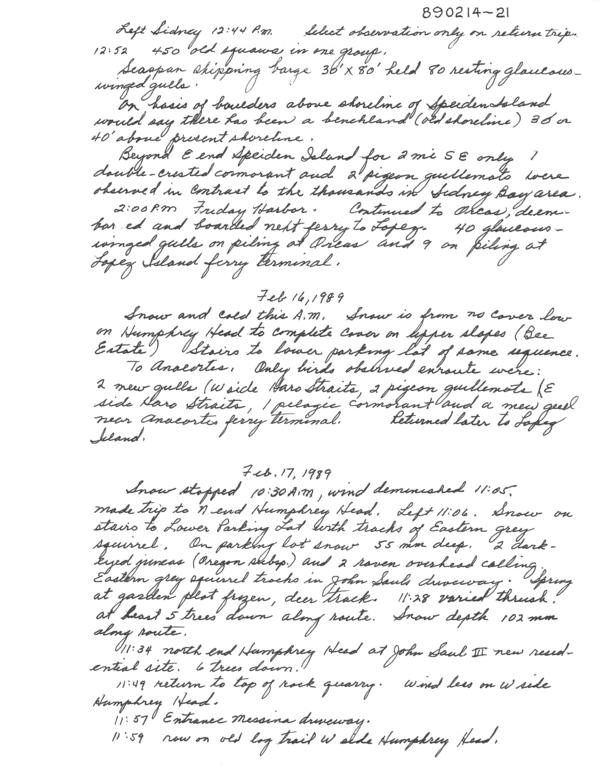 890214-21
Left Sidney 12:44 P.m. Select observation only on return trip.
12:52 450 old squaws in one group.
Seaspan shippning barge 30'x80' held 80 resting glaucous-
winged gulls.
On basis of boulders above shoreline of Speiden Island
would say there has been a benchland (old shoreline) 30 or
40' above present shoreline.
Beyond E end Speiden Island for 2 mi S E only 1
double-crested cormorant and 2 pigeon guillemots were
observed in contrast to the thousands in Sidney Bay area.
2:00 P.m Friday Harbor. Continued to Orcas, deem-
bar ed and boarded next ferry to Lopez. 40 glaucous-
winged gulls on piling at Orcas and 9 on piling at
Lopez Island ferry terminal.
Feb 16, 1989
Snow and cold this A.M. Snow is from no cover low
on Humphrey Head to complete cover on upper slopes (Bee
Estate) Stairs to lower parking lot of same sequence.
To Anacortes. Only birds observed enroute were:
2 mew gulls (W side Haro Straits, 2 pigeon guillemots (E
side Haro Straits, 1 pelagic cormorant and a mew geel
near Anacortes ferry terminal. Returned later to Lopez
Island.
Feb. 17, 1989
Snow stopped 10:30 A.M, wind deminished 11:05.
made trip to N end Humphrey Head. Left 11:06. Snow on
stairs to Lower Parking Lot with tracks of Eastern grey
squirrel. On parking lot snow 55 mm deep. 2 dark-
eyed juncos (Oregon subsp.) and 2 raven overhead calling.
Eastern grey squirrel tracks in John Sauls driveway. Spring
at garden plot frozen, deer track. 11:28 varied thrush.
at least 5 trees down along route. Snow depth 102 mm
along route.
11:34 north end Humphrey Head at John Saul III new resid-
ential site. 6 trees down.
11:49 return to top of rock quarry. Wind less on W side
Humphrey Head.
11:57 Entrance Messina driveway.
11:59 now on old log trail W side Humphrey Head.